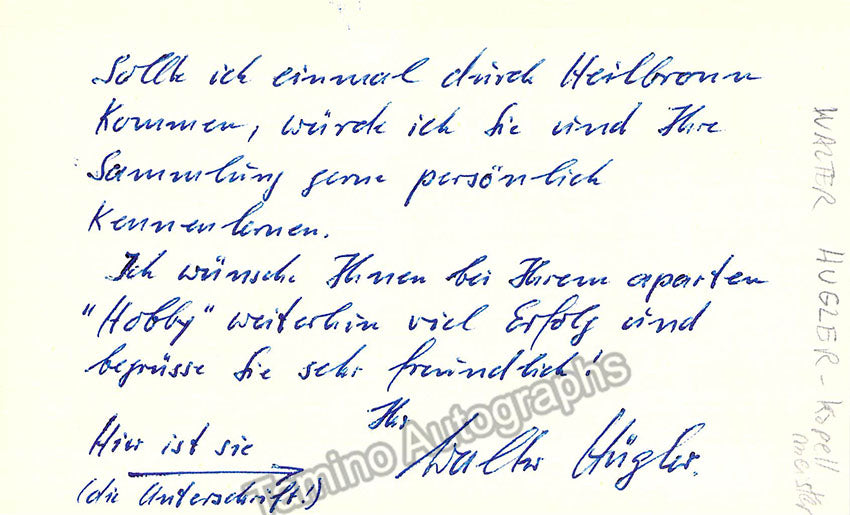 Sollte ich einmal durch Heilbronn
kommen, würde ich Sie und Ihre
Sammlung gerne persönlich
kennenlernen.
Ich wünsche Ihnen bei Ihrem aparten
"Hobby" weiterhin viel Erfolg und
begrüsse Sie sehr freundlich!
Ihr
Hier ist sie
(die Unterschrift!)
Walter Hügler.
Tamino Autographs
WALTER HUGLER - Kapell
meister